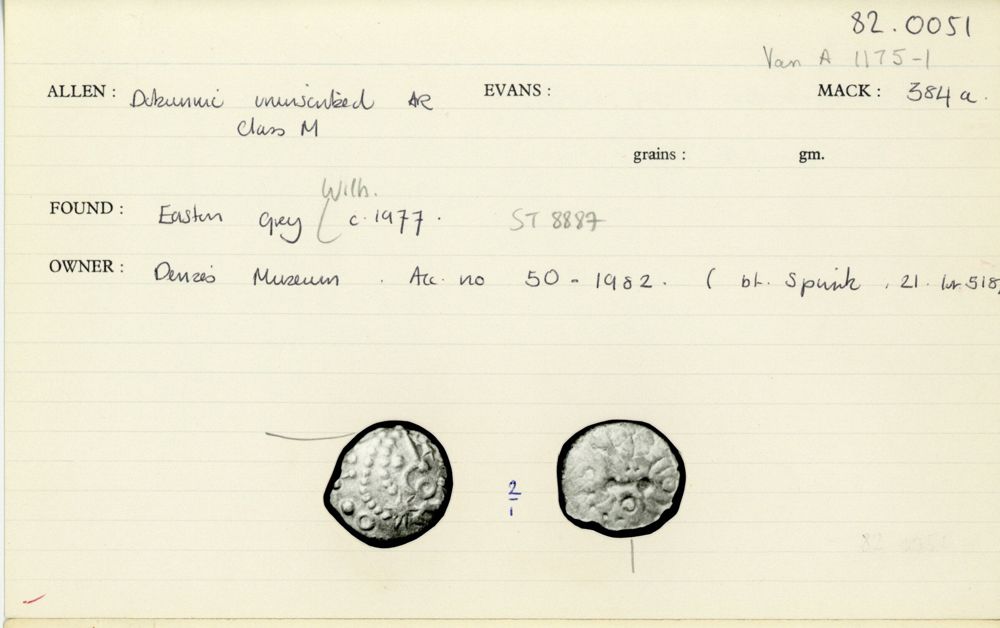 82.0051
Van A 1175-1
ALLEN: Dobunnic uninscribed AR EVANS: MACK: 384 a.
Class M
grains: gm.
Wilh.
FOUND: Easton Grey ( c. 1977. ST 8887
OWNER: Devizes Museum. Acc. no 50-1982. ( bt. Spink, 21.
2
1